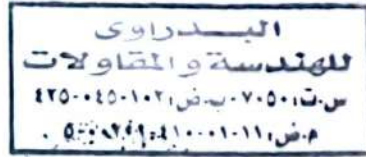 البدراوى
للهندسة والمقاولات
س.ت:٧٠٥٠-ب.ض:١٠٢-٠٤٥-٤٢٥
م.ض:١١-٠١-٤١٠